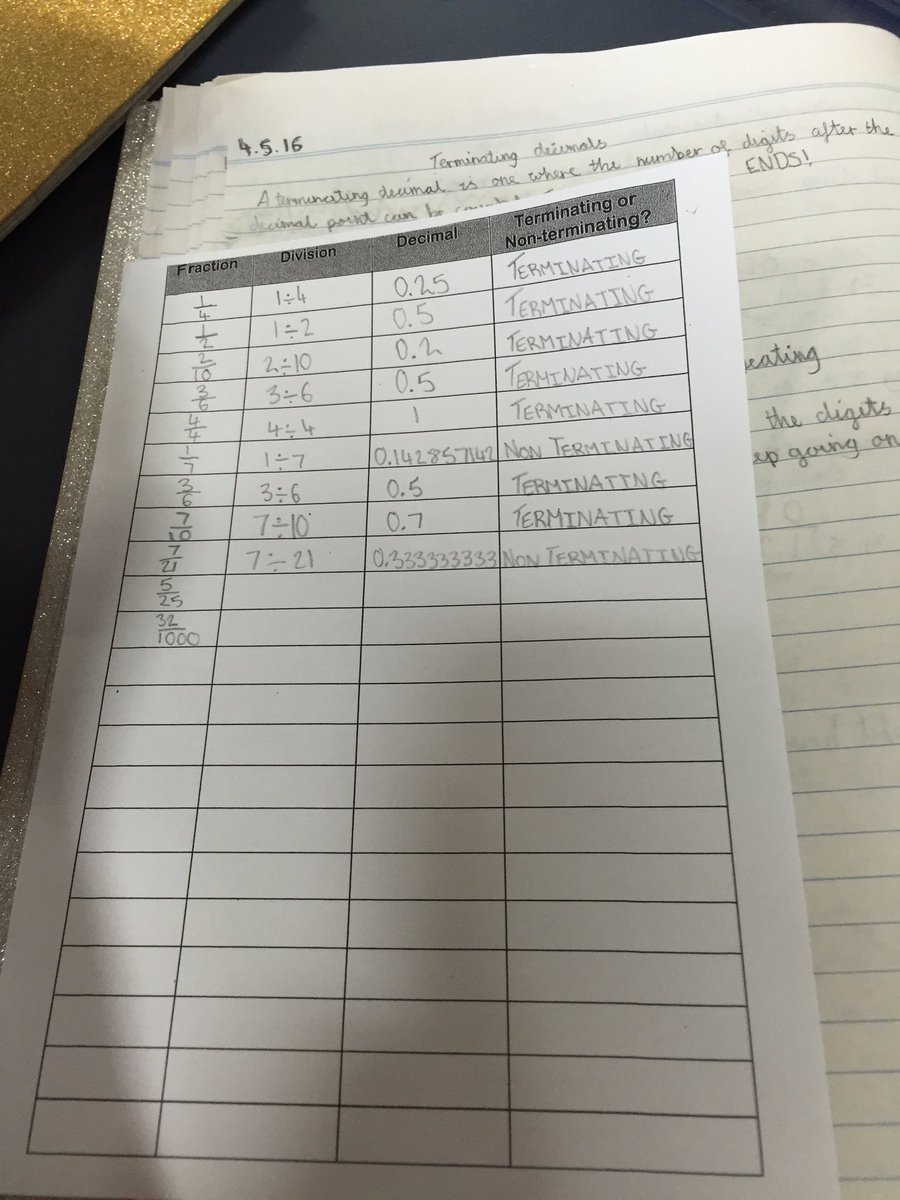 4.5.16
Terminating decimals
A terminating decimal is one where the number of digits after the
decimal point can be ENDS!
Fraction Division Decimal Terminating or Non-terminating?
1/4 1÷4 0.25 TERMINATING
1/2 1÷2 0.5 TERMINATING
2/10 2÷10 0.2 TERMINATING
3/6 3÷6 0.5 TERMINATING
4/4 4÷4 1 TERMINATING
1/7 1÷7 0.142857142 NON TERMINATING
3/6 3÷6 0.5 TERMINATING
7/10 7÷10 0.7 TERMINATING
7/21 7÷21 0.333333333 NON TERMINATING
5/25
32/1000
eating
the digits
ep going on